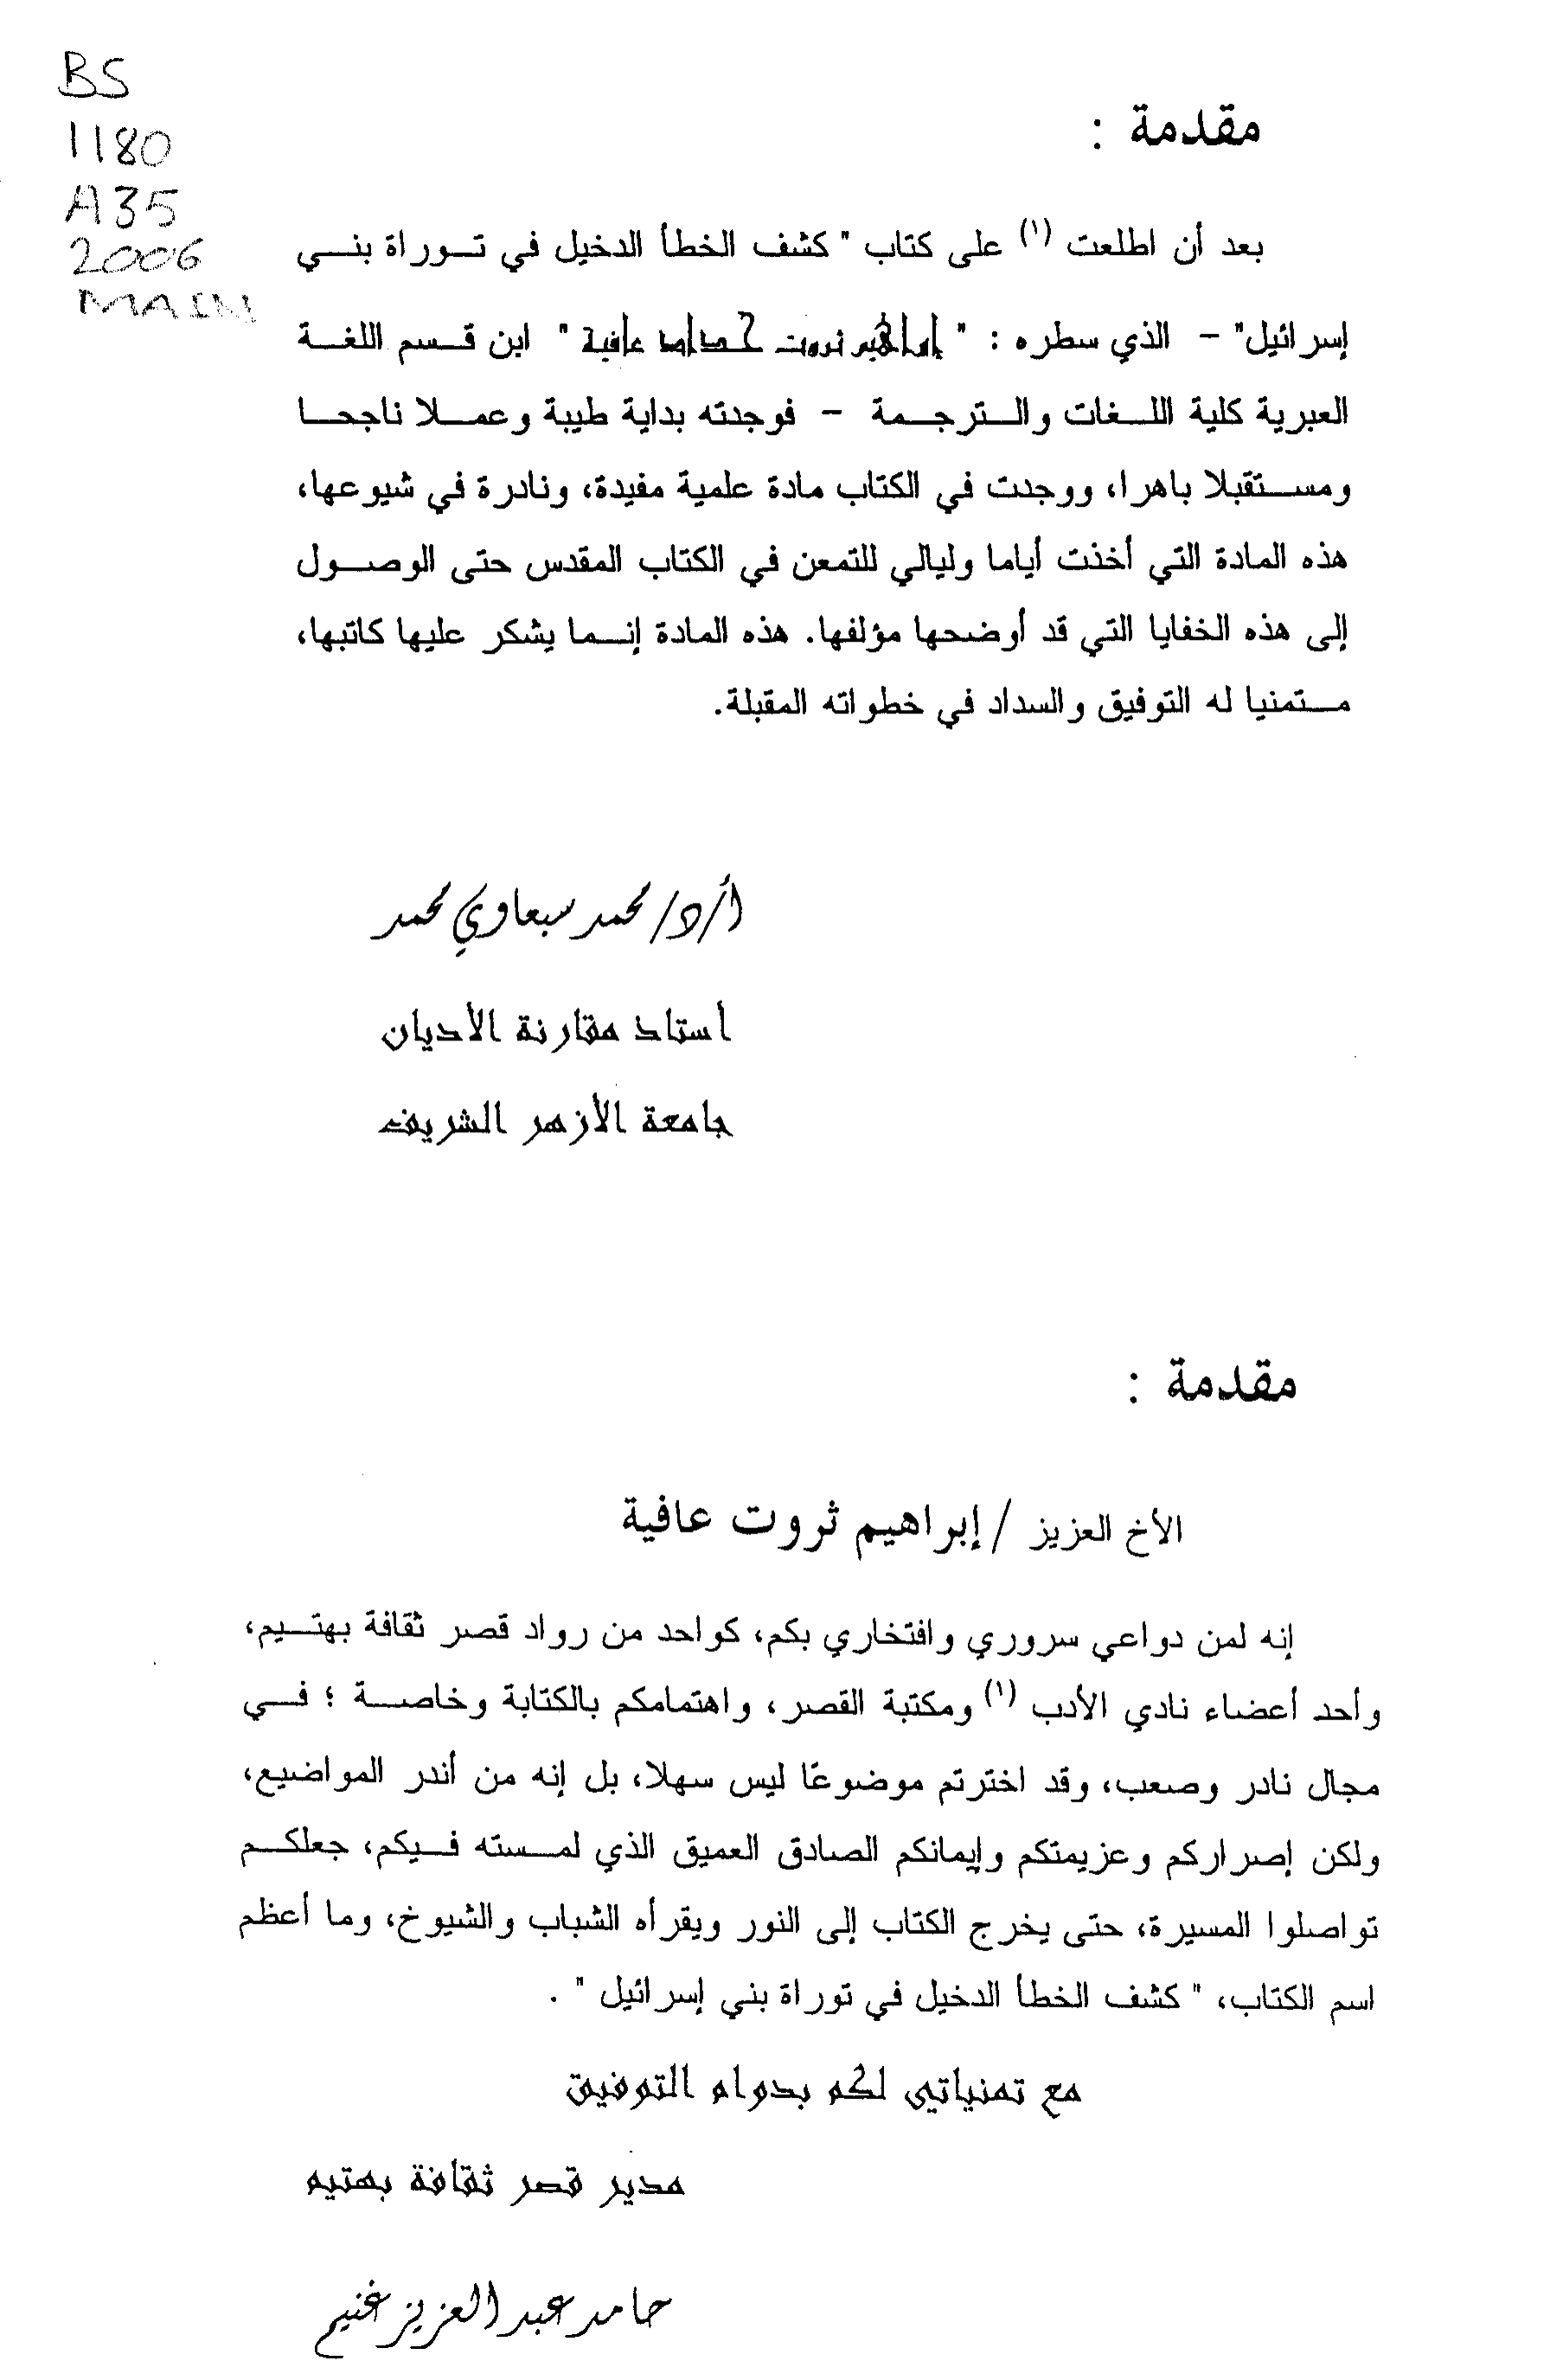 BS
1180
A35
2006
MAIN
مقدمة :
بعد أن اطلعت (١) على كتاب " كشف الخطأ الدخيل في تـوراة بنـي
إسرائيل" – الذي سطره : " إبراهيم ثروت عافية " ابن قـسم اللغـة
العبرية كلية اللـغات والـترجـمة – فوجدته بداية طيبة وعمـلا ناجحـا
ومسـتقبلا باهرا، ووجدت في الكتاب مادة علمية مفيدة، ونادرة في شيوعها،
هذه المادة التي أخذت أياما وليالي للتمعن في الكتاب المقدس حتى الوصـول
إلى هذه الخفايا التي قد أوضحها مؤلفها. هذه المادة إنـما يشكر عليها كاتبها،
مـتمنيا له التوفيق والسداد في خطواته المقبلة.
أ/د/ محمد سبعاوي محمد
أستاذ مقارنة الأديان
جامعة الأزهر الشريف
مقدمة :
الأخ العزيز / إبراهيم ثروت عافية
إنه لمن دواعي سروري وافتخاري بكم، كواحد من رواد قصر ثقافة بهتـيم،
وأحد أعضاء نادي الأدب (١) ومكتبة القصر، واهتمامكم بالكتابة وخاصـة ؛ فـي
مجال نادر وصعب، وقد اخترتم موضوعًا ليس سهلا، بل إنه من أندر المواضيع،
ولكن إصراركم وعزيمتكم وإيمانكم الصادق العميق الذي لمـسته فـيكم، جعلكـم
تواصلوا المسيرة، حتى يخرج الكتاب إلى النور ويقرأه الشباب والشيوخ، وما أعظم
اسم الكتاب، " كشف الخطأ الدخيل في توراة بني إسرائيل " .
مع تمنياتي لكم بدوام التوفيق
مدير قصر ثقافة بهتيم
حامد عبد العزيز غنيم